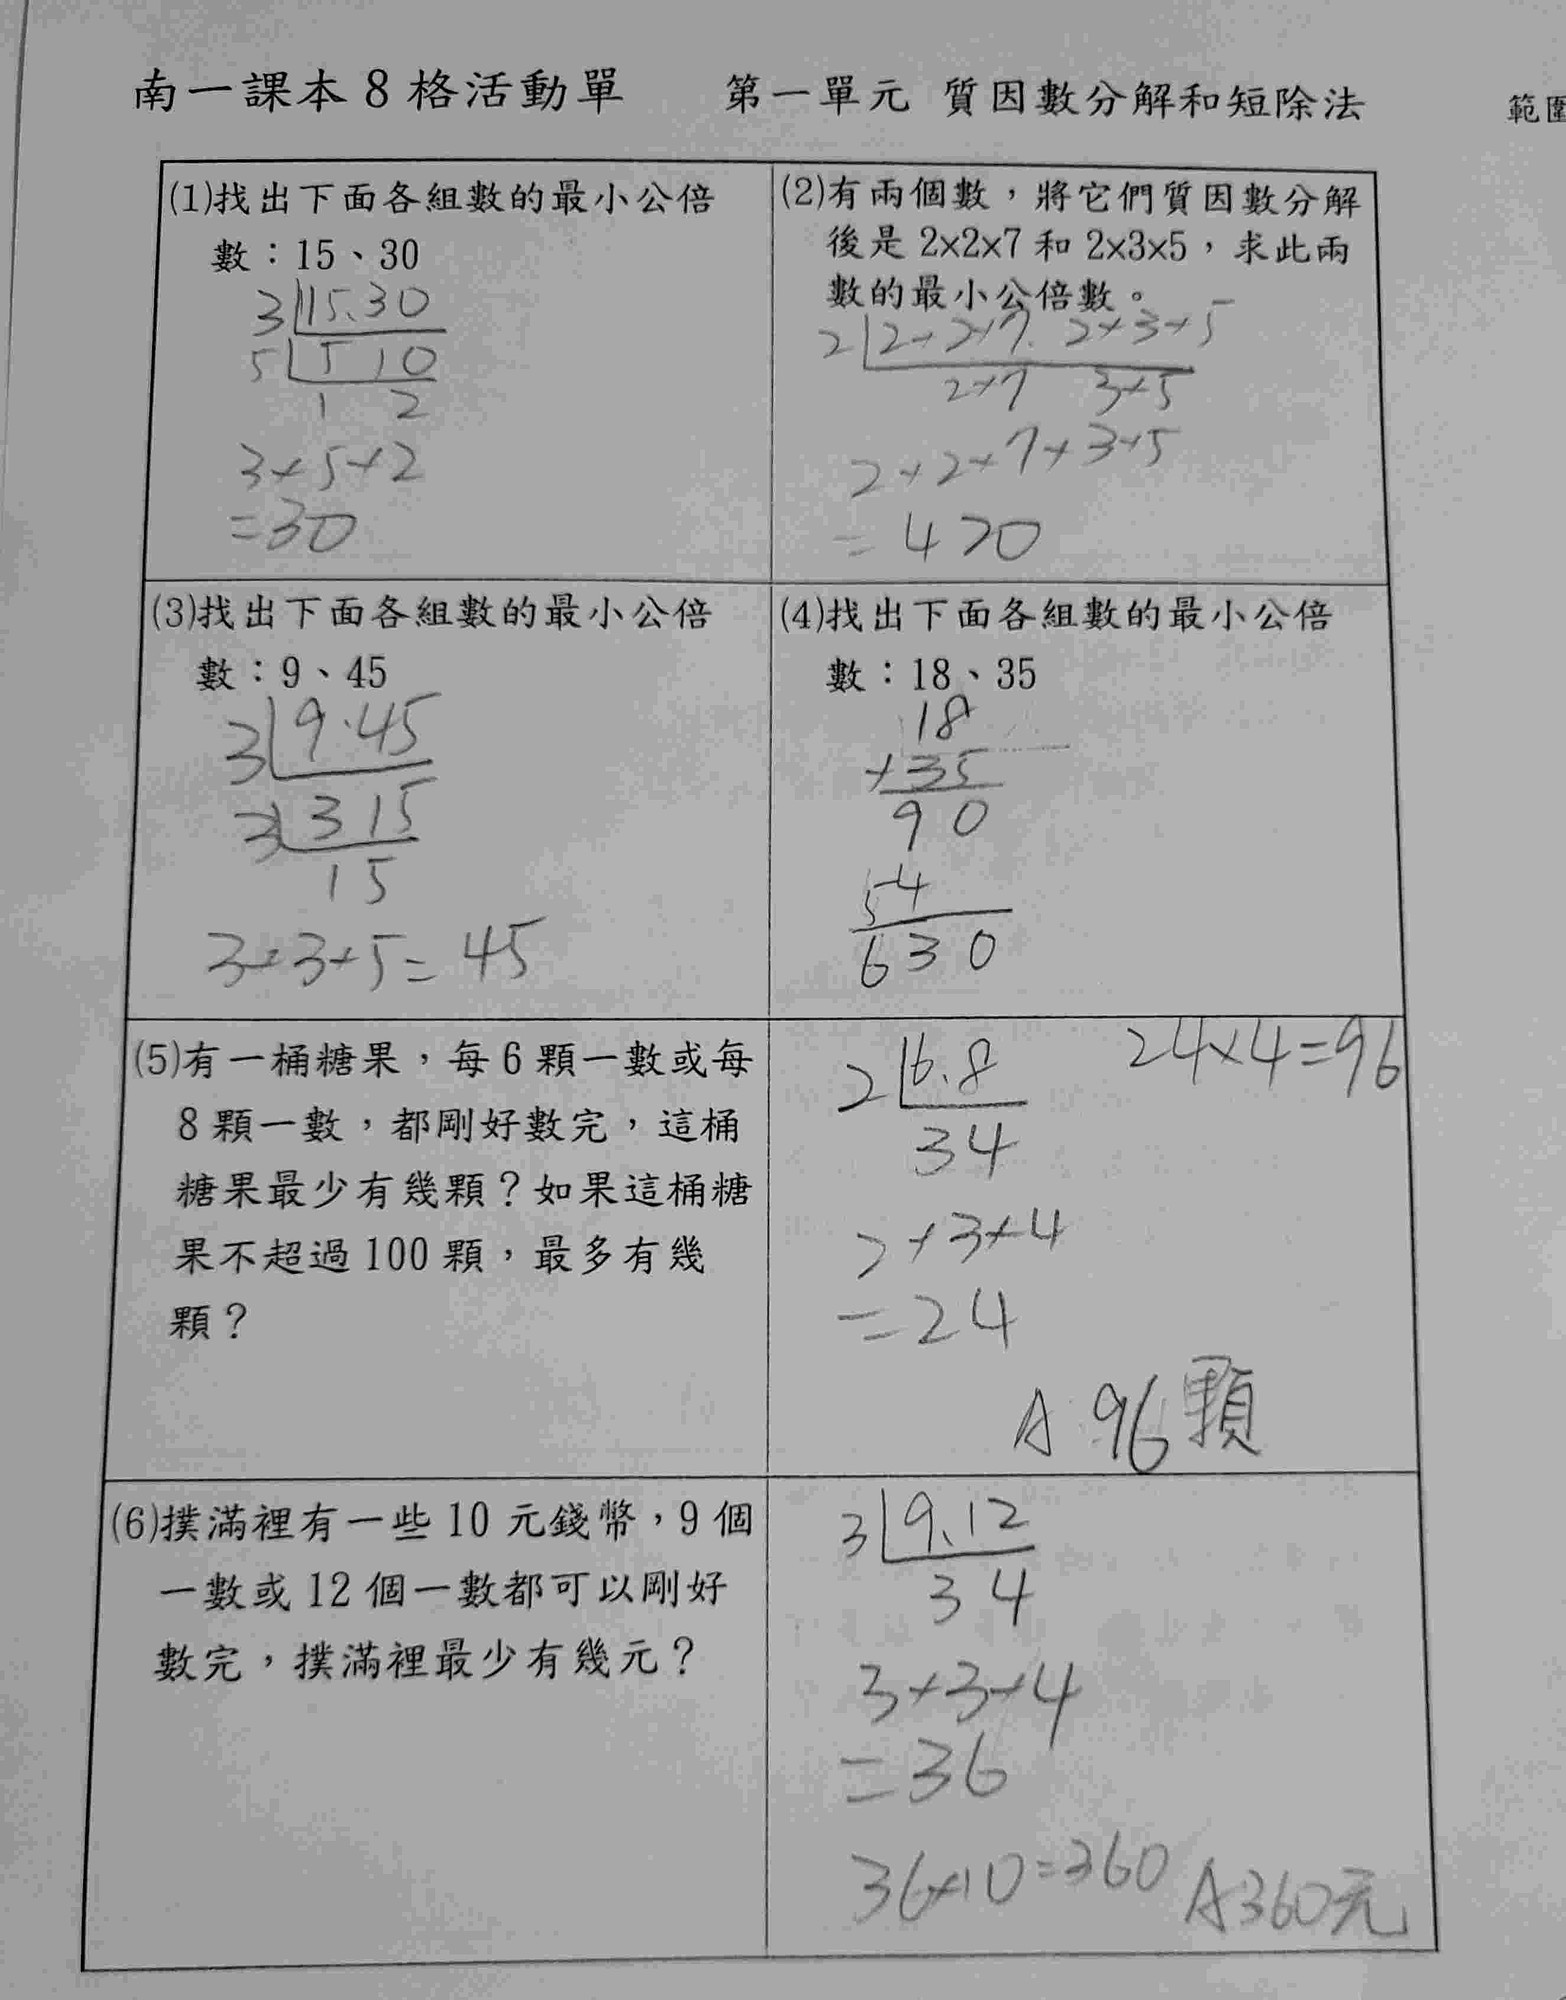 南一課本 8 格活動單 第一單元 質因數分解和短除法 範圍
(1)找出下面各組數的最小公倍
數：15、30
3 15.30
5 5 10
1 2
3×5×2
=30
(2)有兩個數，將它們質因數分解
後是 2×2×7 和 2×3×5，求此兩
數的最小公倍數。
2 2×2×7. 2×3×5
2×7 3×5
2×2×7×3×5
=420
(3)找出下面各組數的最小公倍
數：9、45
3 9.45
3 3 15
1 5
3×3×5=45
(4)找出下面各組數的最小公倍
數：18、35
18
×35
90
54
630
(5)有一桶糖果，每 6 顆一數或每
8 顆一數，都剛好數完，這桶
糖果最少有幾顆？如果這桶糖
果不超過 100 顆，最多有幾
顆？
2 6.8 24×4=96
3 4
2×3×4
=24
A:96顆
(6)撲滿裡有一些 10 元錢幣，9 個
一數或 12 個一數都可以剛好
數完，撲滿裡最少有幾元？
3 9.12
3 4
3×3×4
=36
36×10=360 A360元